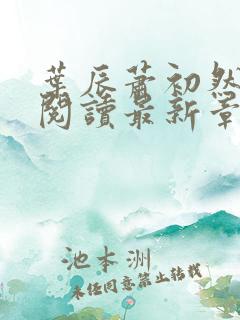 葉辰蕭初然
閱讀最新章
池本洲
未经同意禁止转载